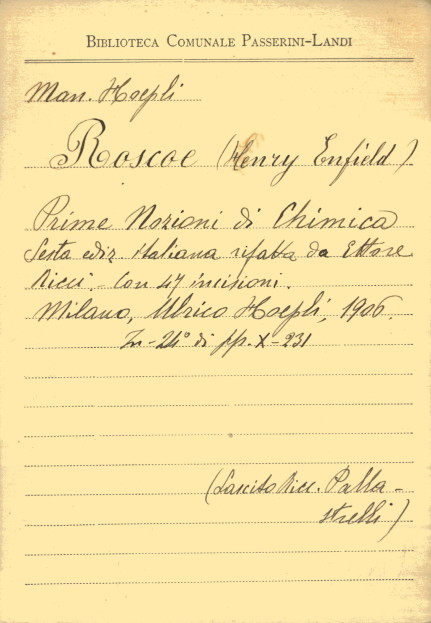 BIBLIOTECA COMUNALE PASSERINI-LANDI
Man. Hoepli
Roscoe (Henry Enfield)
Prime Nozioni di Chimica
Sesta ediz. italiana rifatta da Ettore
Ricci. - Con 47 incisioni.
Milano, Ulrico Hoepli, 1906
In-24° di pp. X-231
(Lascito Ricc. Palla-
strelli)